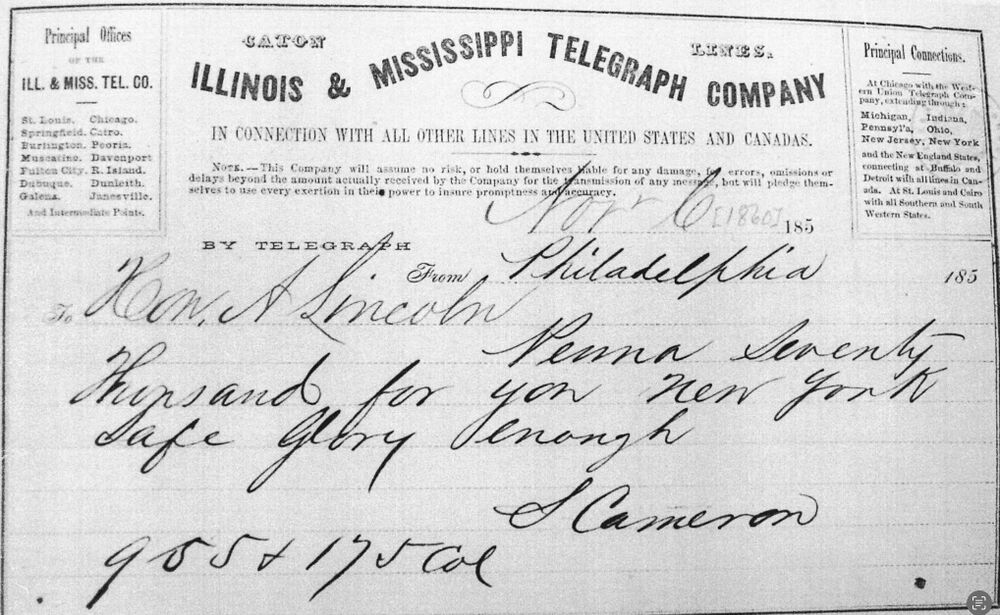 Principal Offices
OF THE
ILL. & MISS. TEL. CO.
St. Louis. Chicago.
Springfield. Cairo.
Burlington. Peoria.
Muscatine. Davenport
Fulton City. R. Island.
Dubuque. Dunleith.
Galena. Janesville.
And Intermediate Points.
CATON LINES.
ILLINOIS & MISSISSIPPI TELEGRAPH COMPANY
IN CONNECTION WITH ALL OTHER LINES IN THE UNITED STATES AND CANADAS.
NOTE.—This Company will assume no risk, or hold themselves liable for any damage, for errors, omissions or
delays beyond the amount actually received by the Company for the transmission of any message, but will pledge them-
selves to use every exertion in their power to insure promptness and accuracy.
Principal Connections.
At Chicago with the West-
ern Union Telegraph Com-
pany, extending through:
Michigan, Indiana,
Pennsyl'a, Ohio,
New Jersey, New York
and the New England States,
connecting at Buffalo and
Detroit with all lines in Can-
ada. At St. Louis and Cairo
with all Southern and South
Western States.
Novr 6 [1860] 185
BY TELEGRAPH
From Philadelphia 185
To Hon. A Lincoln
Penna Seventy
Thousand for you New York
Safe Glory enough
S Cameron
9 55 + 175 Col